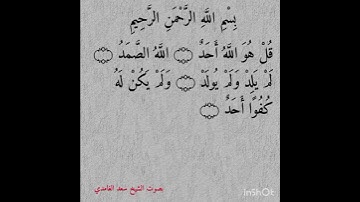 بِسْمِ اللَّهِ الرَّحْمَنِ الرَّحِيمِ
قُلْ هُوَ اللَّهُ أَحَدٌ ۝ اللَّهُ الصَّمَدُ ۝
لَمْ يَلِدْ وَلَمْ يُولَدْ ۝ وَلَمْ يَكُنْ لَهُ
كُفُوًا أَحَدٌ ۝
بصوت الشيخ سعد الغامدي
InShOt